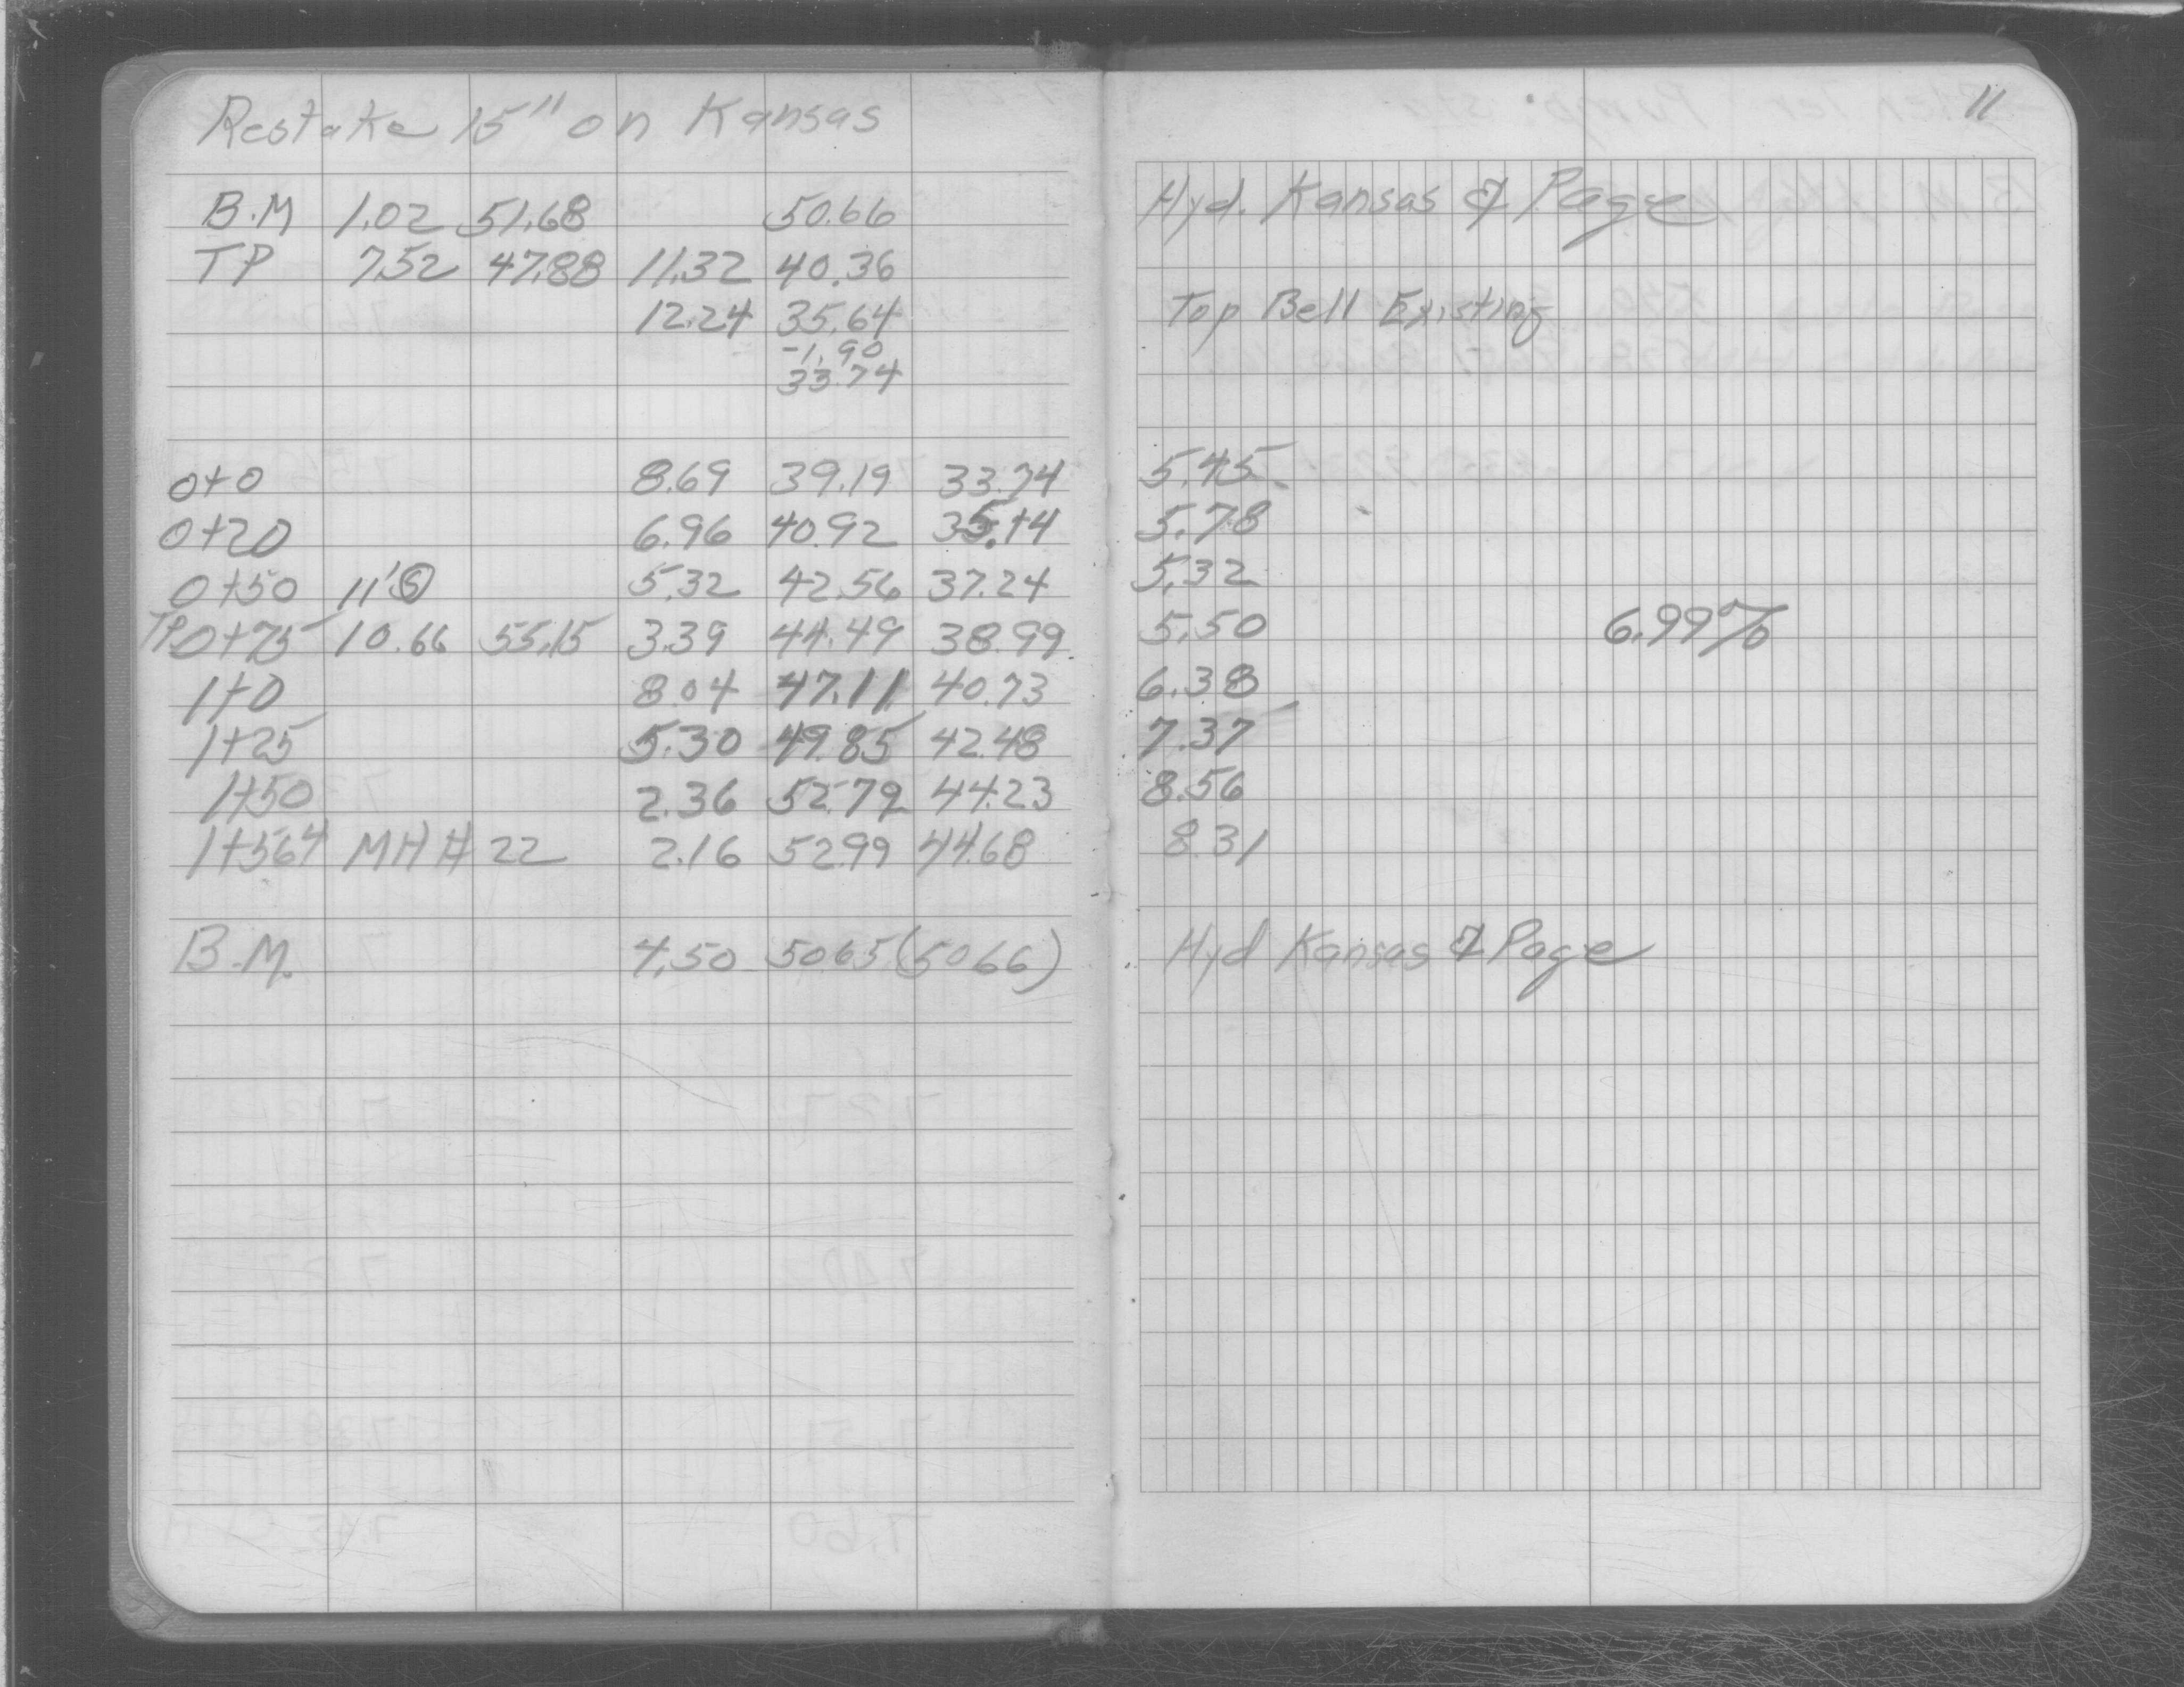 Restake 15" on Kansas
11
B.M 1.02 51.68 50.66 Hyd. Kansas & Page
TP 7.52 47.88 11.32 40.36
12.24 35.64 Top Bell Existing
-1.90
33.74
0+0 8.69 39.19 33.74 5.45
0+20 6.96 40.92 35.14 5.78
0+50 11' Ⓢ 5.32 42.56 37.24 5.32
TP 0+75 10.66 55.15 3.39 44.49 38.99 5.50 6.99%
1+0 8.04 47.11 40.73 6.38
1+25 5.30 49.85 42.48 7.37
1+50 2.36 52.79 44.23 8.56
1+564 MH # 22 2.16 52.99 44.68 8.31
B.M. 4.50 50.65 (50.66) Hyd Kansas & Page